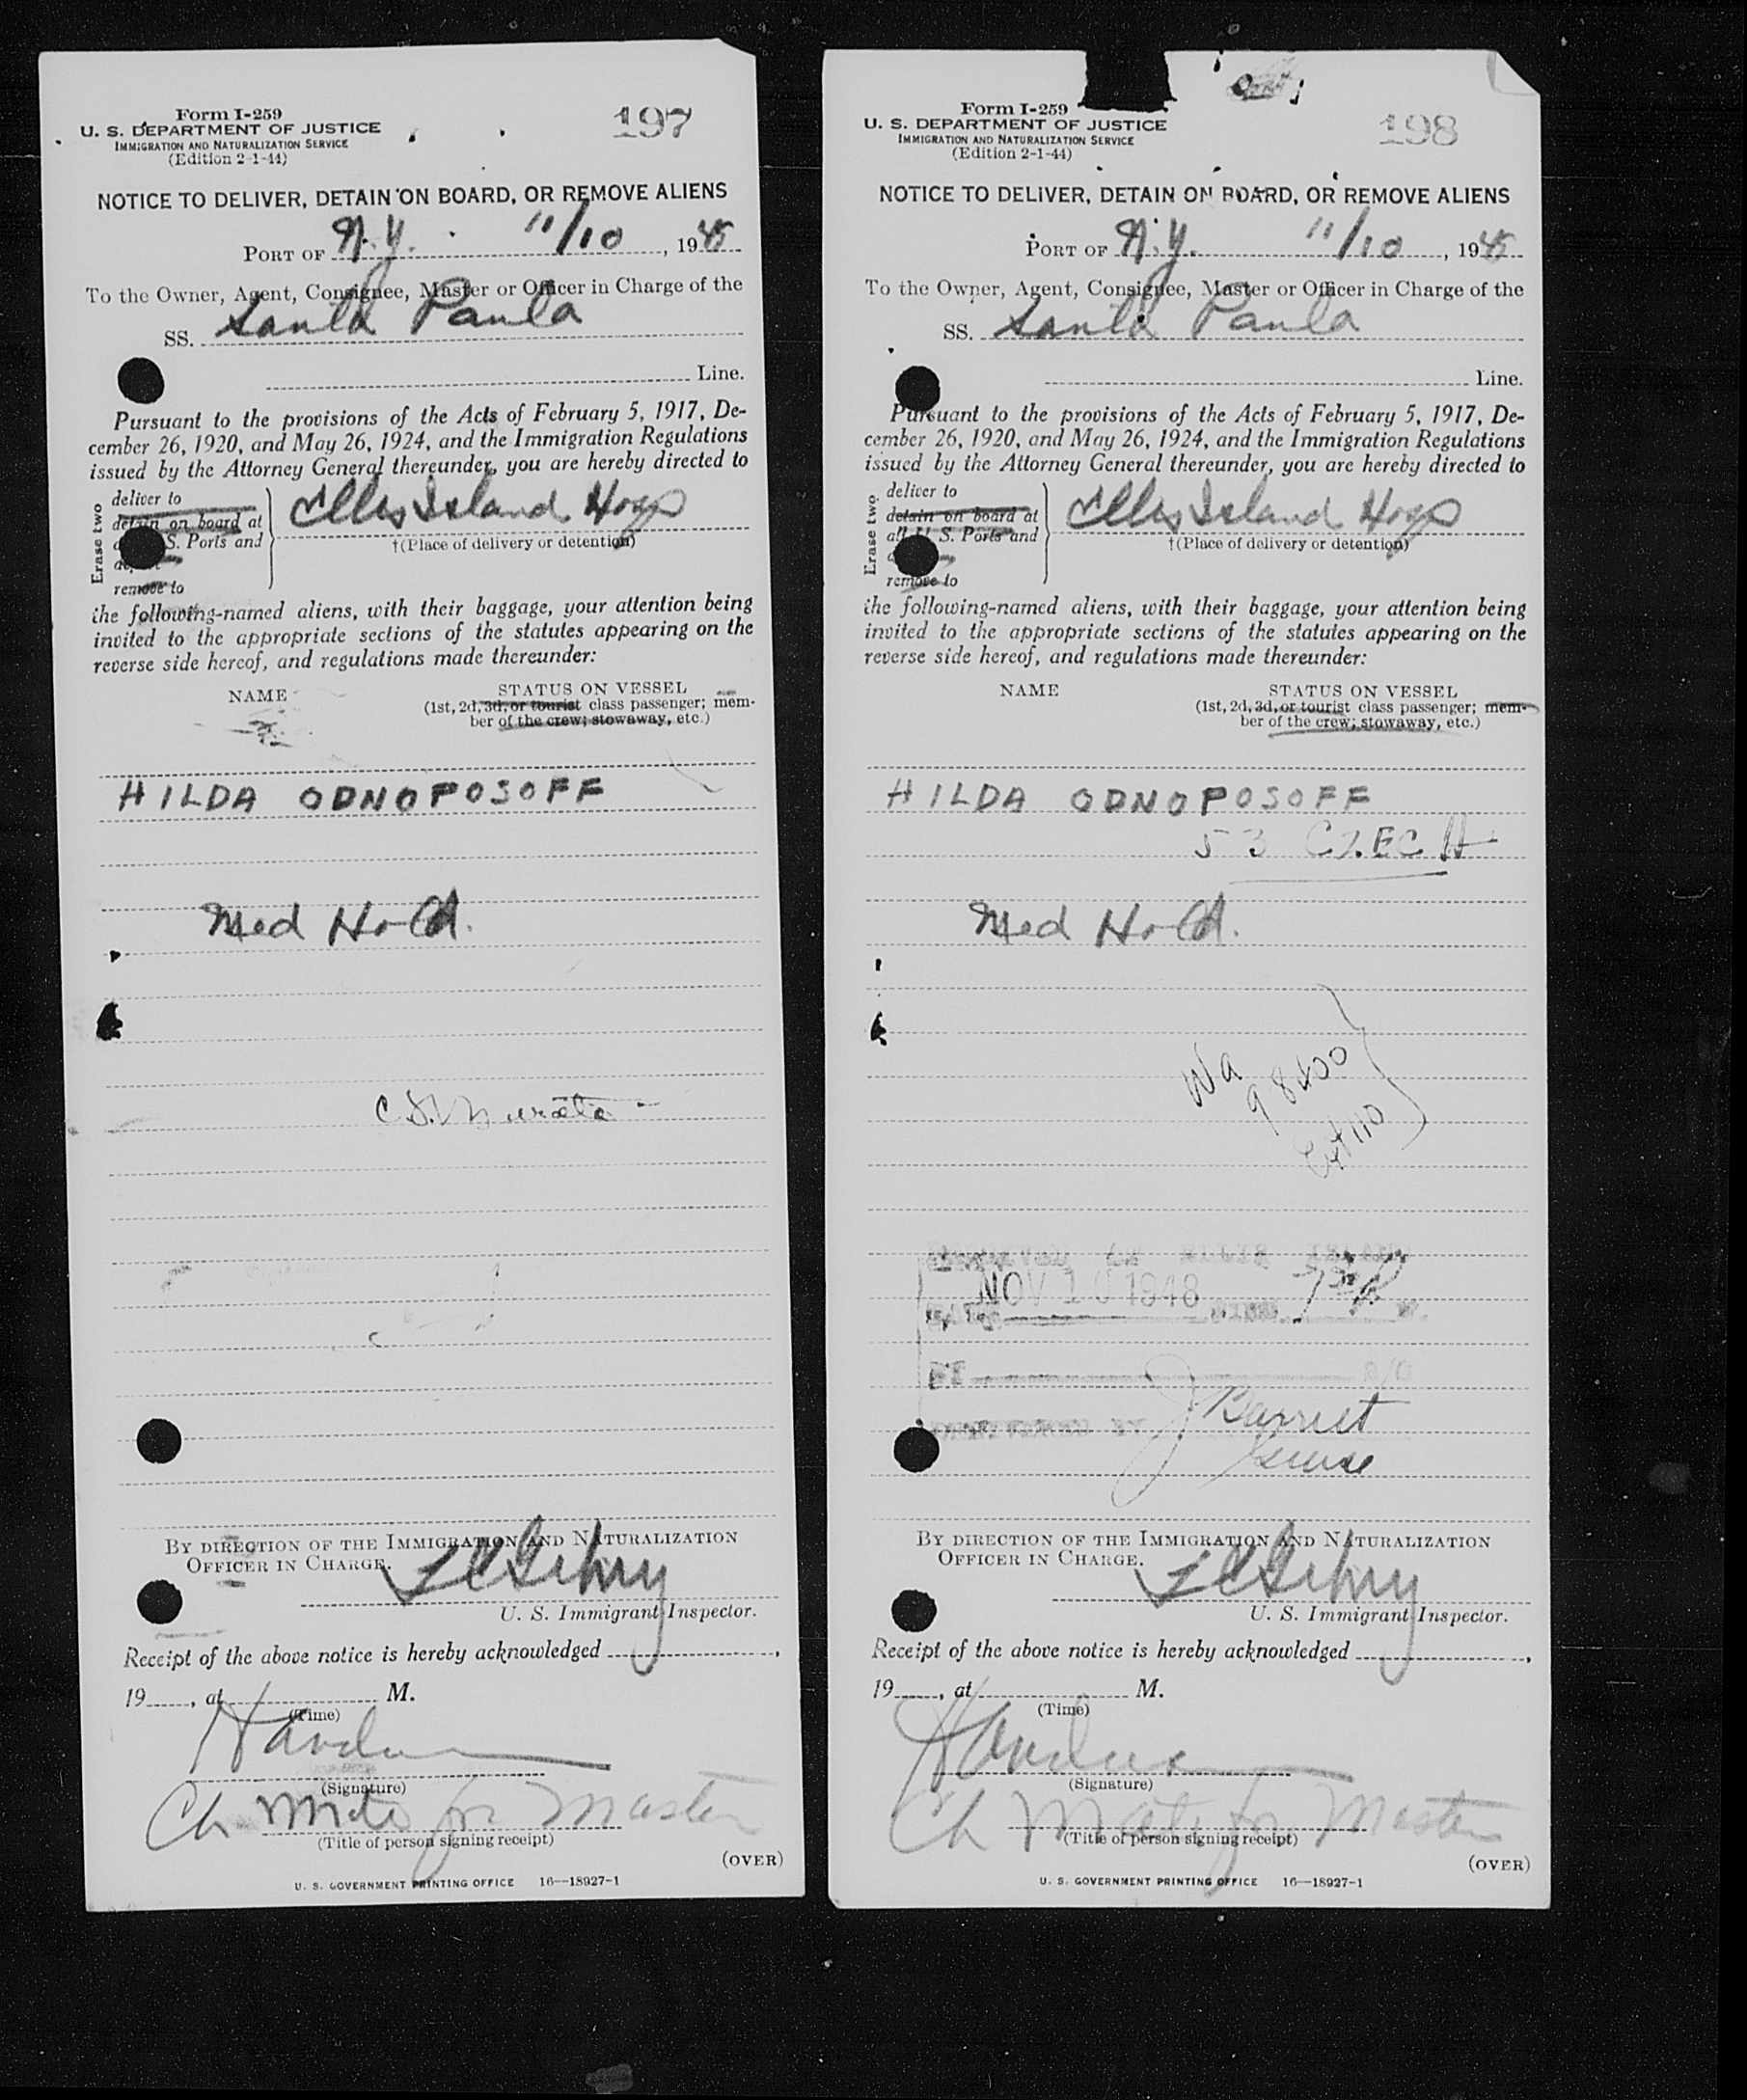 Form I-259
U. S. DEPARTMENT OF JUSTICE
IMMIGRATION AND NATURALIZATION SERVICE
(Edition 2-1-44)
197
NOTICE TO DELIVER, DETAIN ON BOARD, OR REMOVE ALIENS
PORT OF N.Y. 11/10, 19
To the Owner, Agent, Consignee, Master or Officer in Charge of the
SS. Santa Paula
Line.
Pursuant to the provisions of the Acts of February 5, 1917, De-
cember 26, 1920, and May 26, 1924, and the Immigration Regulations
issued by the Attorney General thereunder, you are hereby directed to
Erase two
deliver to
detain on board at
S. Ports and
remove to
Ellis Island Hosp
†(Place of delivery or detention)
the following-named aliens, with their baggage, your attention being
invited to the appropriate sections of the statutes appearing on the
reverse side hereof, and regulations made thereunder:
NAME
STATUS ON VESSEL
(1st, 2d, 3d, or tourist class passenger; mem-
ber of the crew; stowaway, etc.)
HILDA ODNOPOSOFF
Med Hold.
BY DIRECTION OF THE IMMIGRATION AND NATURALIZATION
OFFICER IN CHARGE.
U. S. Immigrant Inspector.
Receipt of the above notice is hereby acknowledged
19, at M.
(Time)
(Signature)
Ch Mate for Master
(Title of person signing receipt)
(OVER)
U. S. GOVERNMENT PRINTING OFFICE 16—18927-1
Form I-259
U. S. DEPARTMENT OF JUSTICE
IMMIGRATION AND NATURALIZATION SERVICE
(Edition 2-1-44)
198
NOTICE TO DELIVER, DETAIN ON BOARD, OR REMOVE ALIENS
PORT OF N.Y. 11/10, 19
To the Owner, Agent, Consignee, Master or Officer in Charge of the
SS. Santa Paula
Line.
Pursuant to the provisions of the Acts of February 5, 1917, De-
cember 26, 1920, and May 26, 1924, and the Immigration Regulations
issued by the Attorney General thereunder, you are hereby directed to
Erase two
deliver to
detain on board at
all U. S. Ports and
remove to
Ellis Island Hosp
†(Place of delivery or detention)
the following-named aliens, with their baggage, your attention being
invited to the appropriate sections of the statutes appearing on the
reverse side hereof, and regulations made thereunder:
NAME
STATUS ON VESSEL
(1st, 2d, 3d, or tourist class passenger; mem-
ber of the crew; stowaway, etc.)
HILDA ODNOPOSOFF
53 CZECH
Med Hold.
Wa
98400
Ext 110
NOV 10 1948
BY DIRECTION OF THE IMMIGRATION AND NATURALIZATION
OFFICER IN CHARGE.
U. S. Immigrant Inspector.
Receipt of the above notice is hereby acknowledged
19, at M.
(Time)
(Signature)
Ch Mate for Master
(Title of person signing receipt)
(OVER)
U. S. GOVERNMENT PRINTING OFFICE 16—18927-1